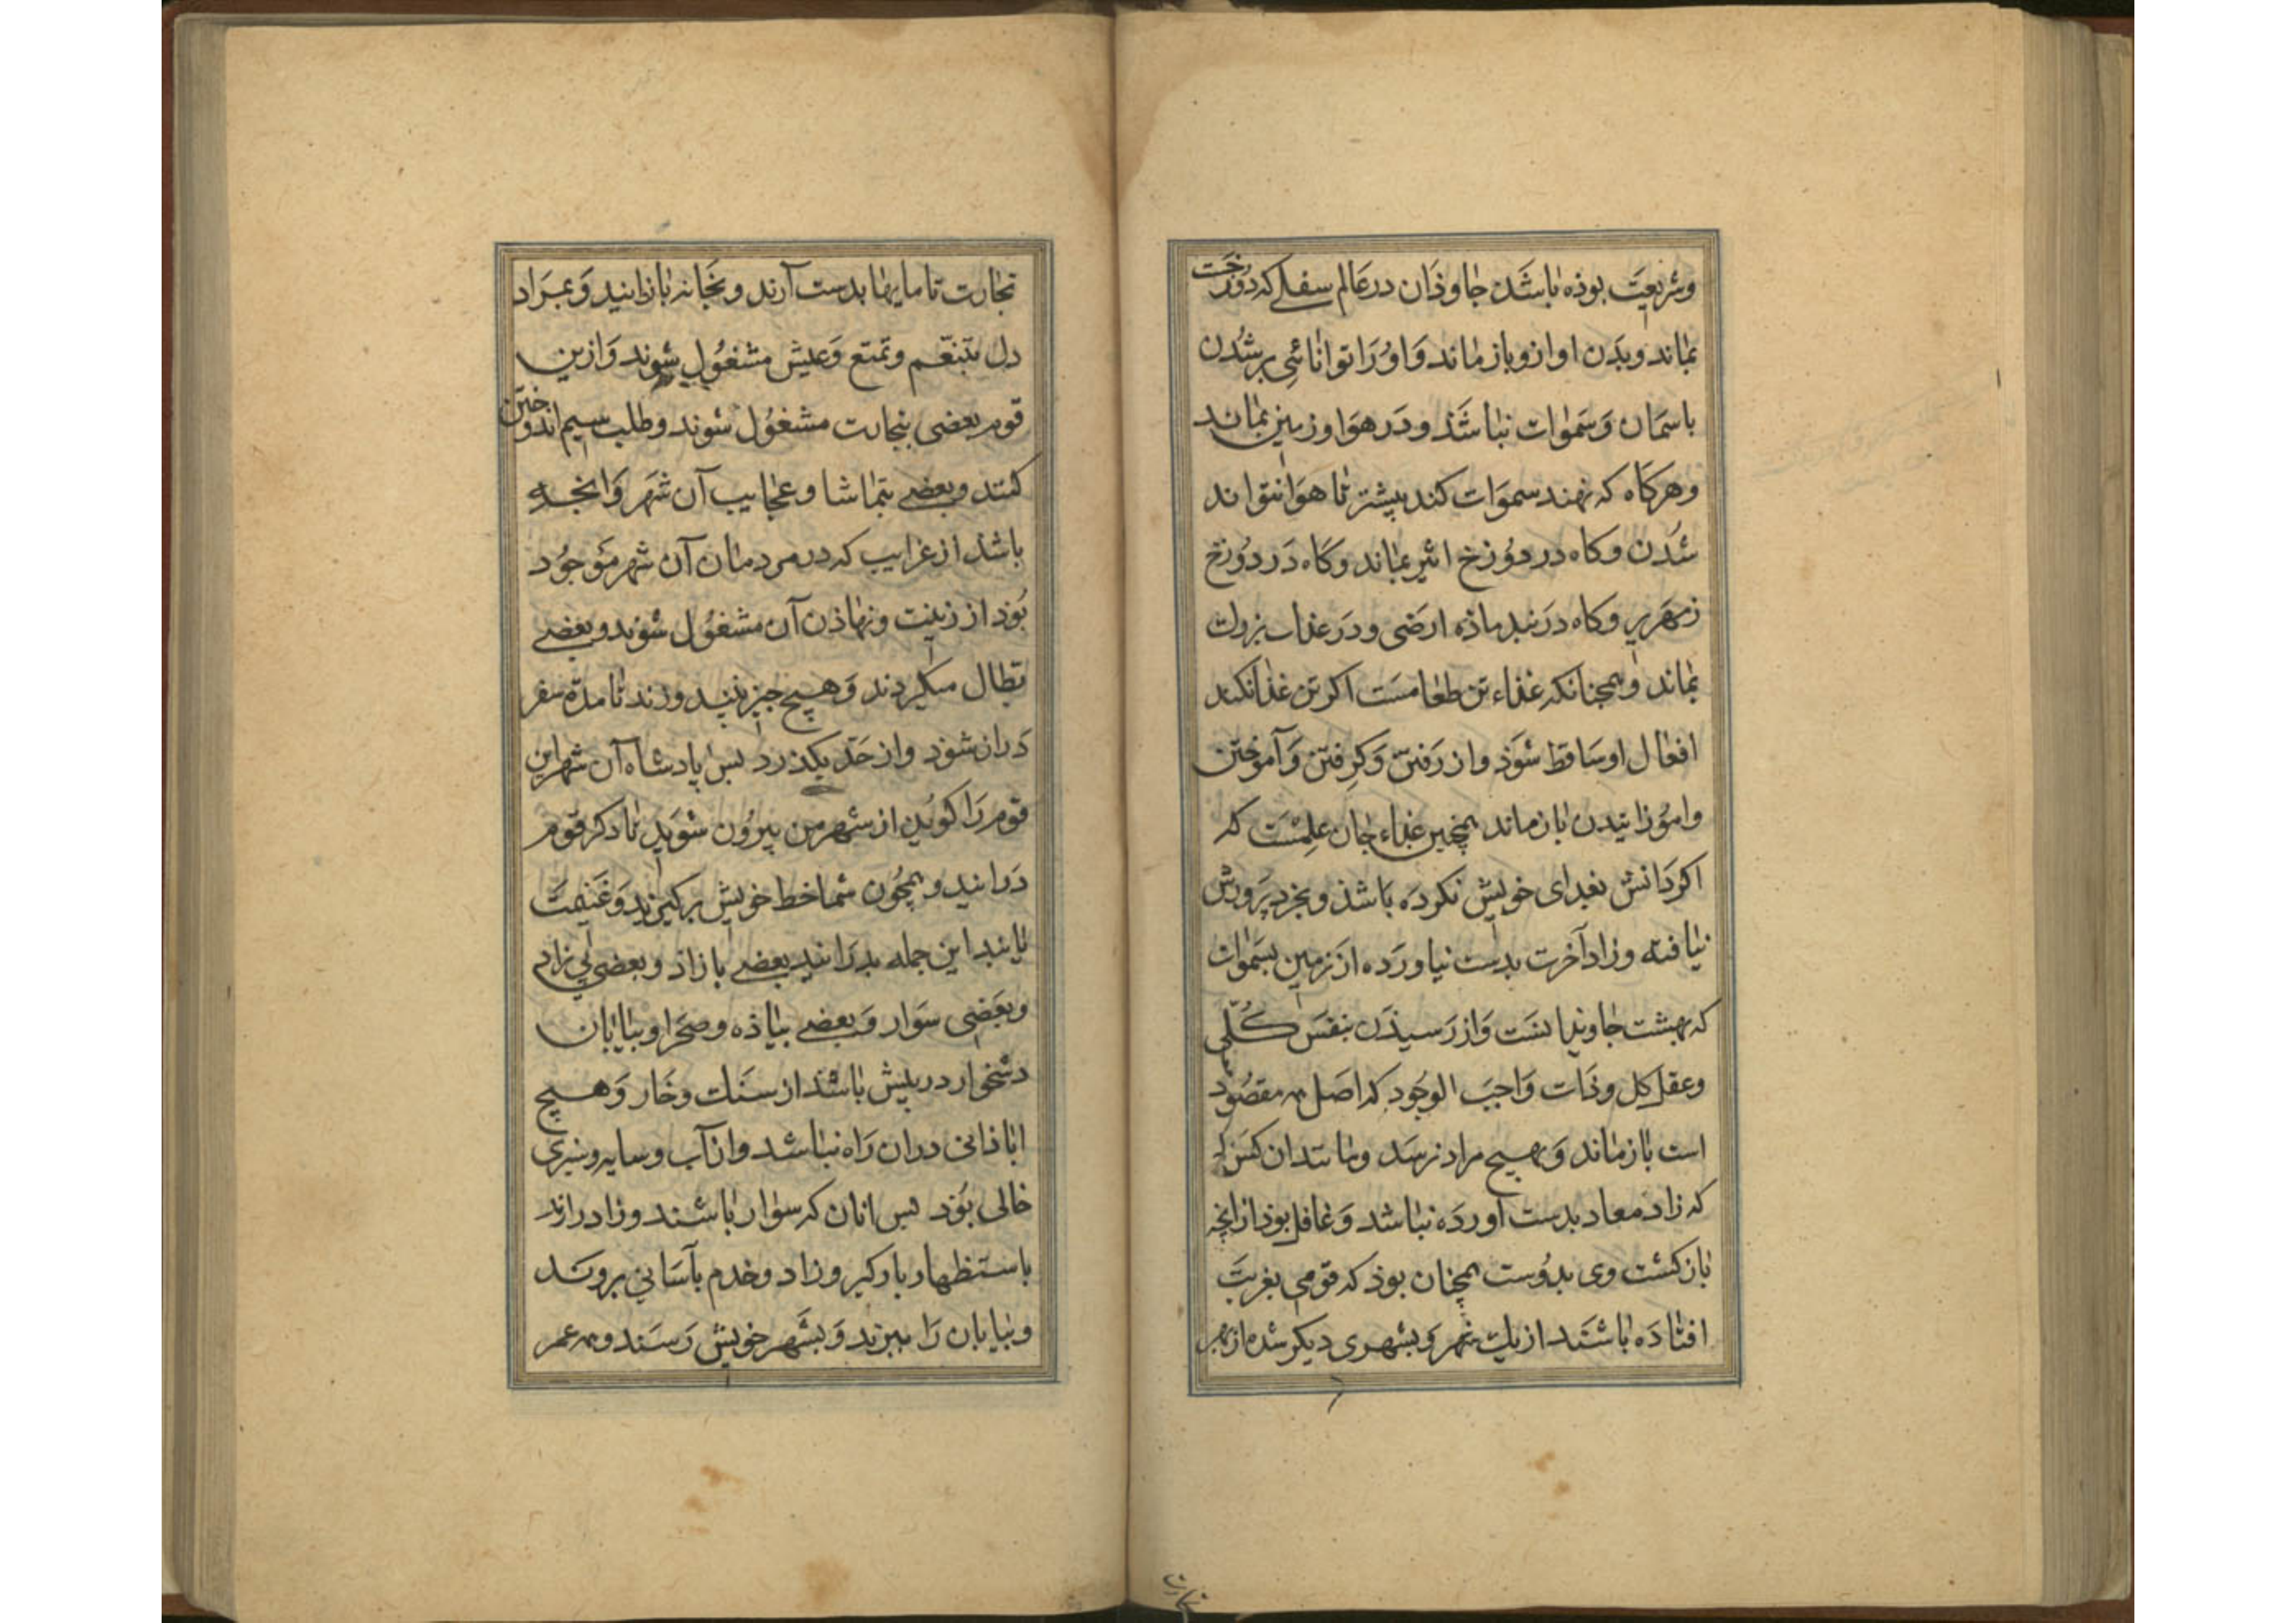 وشریعت بوذه باشد جاوذان در عالم سفلے که دوزخست
بماند وبدن او ازو باز ماند و او را توانائی بر شدن
باسمان وسموات نباشد و در هوا و زمین بماند
وهرکاه که نهند سموات کند بیشتر تا هوا نتواند
شدن وکاه در دوزخ اثیر بماند وکاه در دوزخ
زمهریر وکاه در بند ماذه ارضی و در عذاب نزولت
بماند و همچنانکه غذاء تن طعامست اکر تن غذا نکند
افعال او ساقط شوذ و از رفتن وکرفتن و آموختن
واموزانیدن باز ماند همچنین غذاء جان علمست که
اکر دانش بغدای خویش نکرده باشذ و بخرد پرورش
نیافته وزاد آخرت بدست نیاورده از زمین بسموات
که بهشت جاویدانست و از رسیذن بنفس کلّی
وعقل کل وذات واجب الوجود که اصل همه مقصود
است باز ماند و بهیچ مراد نرسد و مانند ان کس که
که زاد معاد بدست اورده نباشد و غافل بوذ از انچه
باز کشت وی بدوست همچنان بوذ که قومی بغربت
افتاده باشند از یک شهر و بشهری دیکر شده از بهر
تجارت
تجارت تا مایها بدست آرند وبخانه باز ایند و بمراد
دل بتنعّم وتمتع وعیش مشغول شوند و ازین
قوم بعضی بتجارت مشغول شوند وطلب سیم اندوختن
کنند وبعضے بتماشا وعجایب آن شهر وانجه
باشذ از غرایب که در مردمان آن شهر موجود
بوذ از زینت ونهاذن آن مشغول شوند وبعضے
بطال میکردند و هیچ چیز نیندوزند تا مدّه سفر
دراز شوذ و از حدّ بکذرد پس پادشاه آن شهر این
قوم را کوید از شهر من بیرون شوید تا دکر قوم
درایند و همچون شما خط خویش برکیرند و غنیمت
یابند این جمله بدر ایند بعضے با زاد و بعضی بی زاد
وبعضی سوار وبعضے بیاذه وصحرا وبیابان
دشخوار در پیش باشذ از سنک وخار وهیچ
اباذانی دران راه نباشد و از آب وسایه و سبزی
خالی بود پس انان که سوار باشند وزاد دارند
باستظهار بارکیر وزاد وخدم بآسانی بروند
وبیابان را ببرند و بشهر خویش رسند وهمه عمر